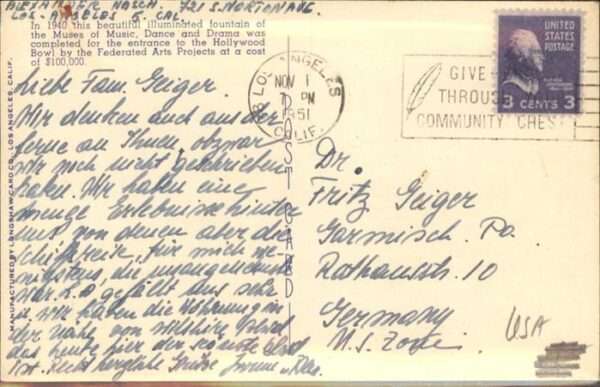 ALEXANDER HASCH. 721 S. NORTON AVE.
LOS-ANGELOS 5 CAL.
In 1940 this beautiful illuminated fountain of
the Muses of Music, Dance and Drama was
completed for the entrance to the Hollywood
Bowl by the Federated Arts Projects at a cost
of $100,000.
Liebe Fam. Geiger.
Wir denken auch aus der
ferne an Ihnen, obzwar
wir noch nicht geschrieben
haben. Wir haben eine
menge Erlebnisse hinter
uns von denen aber die
Schiffsreise, für mich we-
nigstens, die unangenehmste
war. L.A. gefällt uns sehr
u. wir haben die Wohnung in
der Nähe von Wilshire Blvd
das heute hier der schönste Blvd
ist. Recht herzliche Grüsse
MANUFACTURED BY LONGSHAW CARD CO., LOS ANGELES, CALIF.
POST CARD
LOS ANGELES
NOV 1
7 PM
1951
CALIF.
GIVE
THROUGH
COMMUNITY CHEST
UNITED
STATES
POSTAGE
3 CENTS 3
Dr.
Fritz Geiger
Garmisch. Pa.
Rathausstr. 10
Germany
U.S. Zone
USA